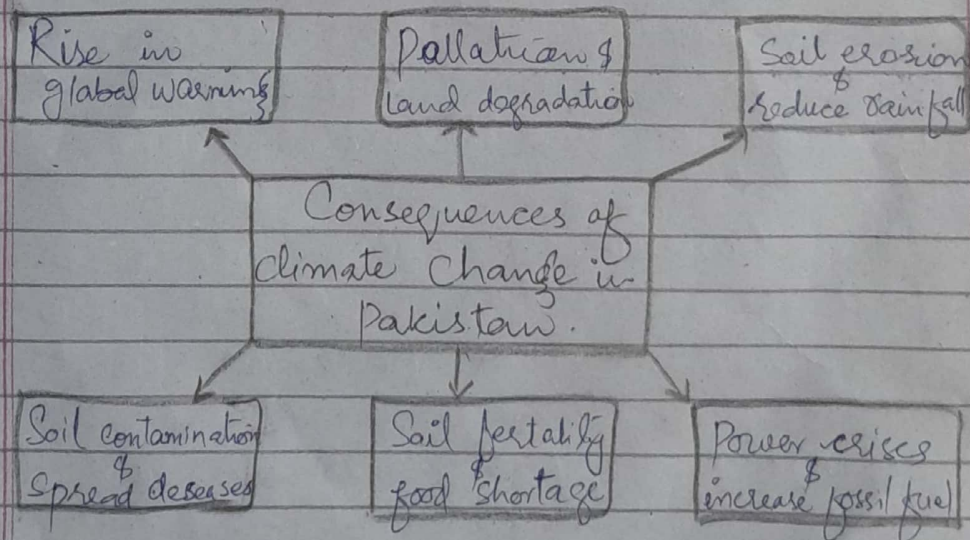 Rise in
global warning
Pallatian &
land dogradation
Soil erosion
&
reduce rainfall
Consequences of
climate Change in
Pakistan.
Soil contamination
&
Spread deseases
Soil fertality
&
food shortage
Power crises
&
increase fossil fuel